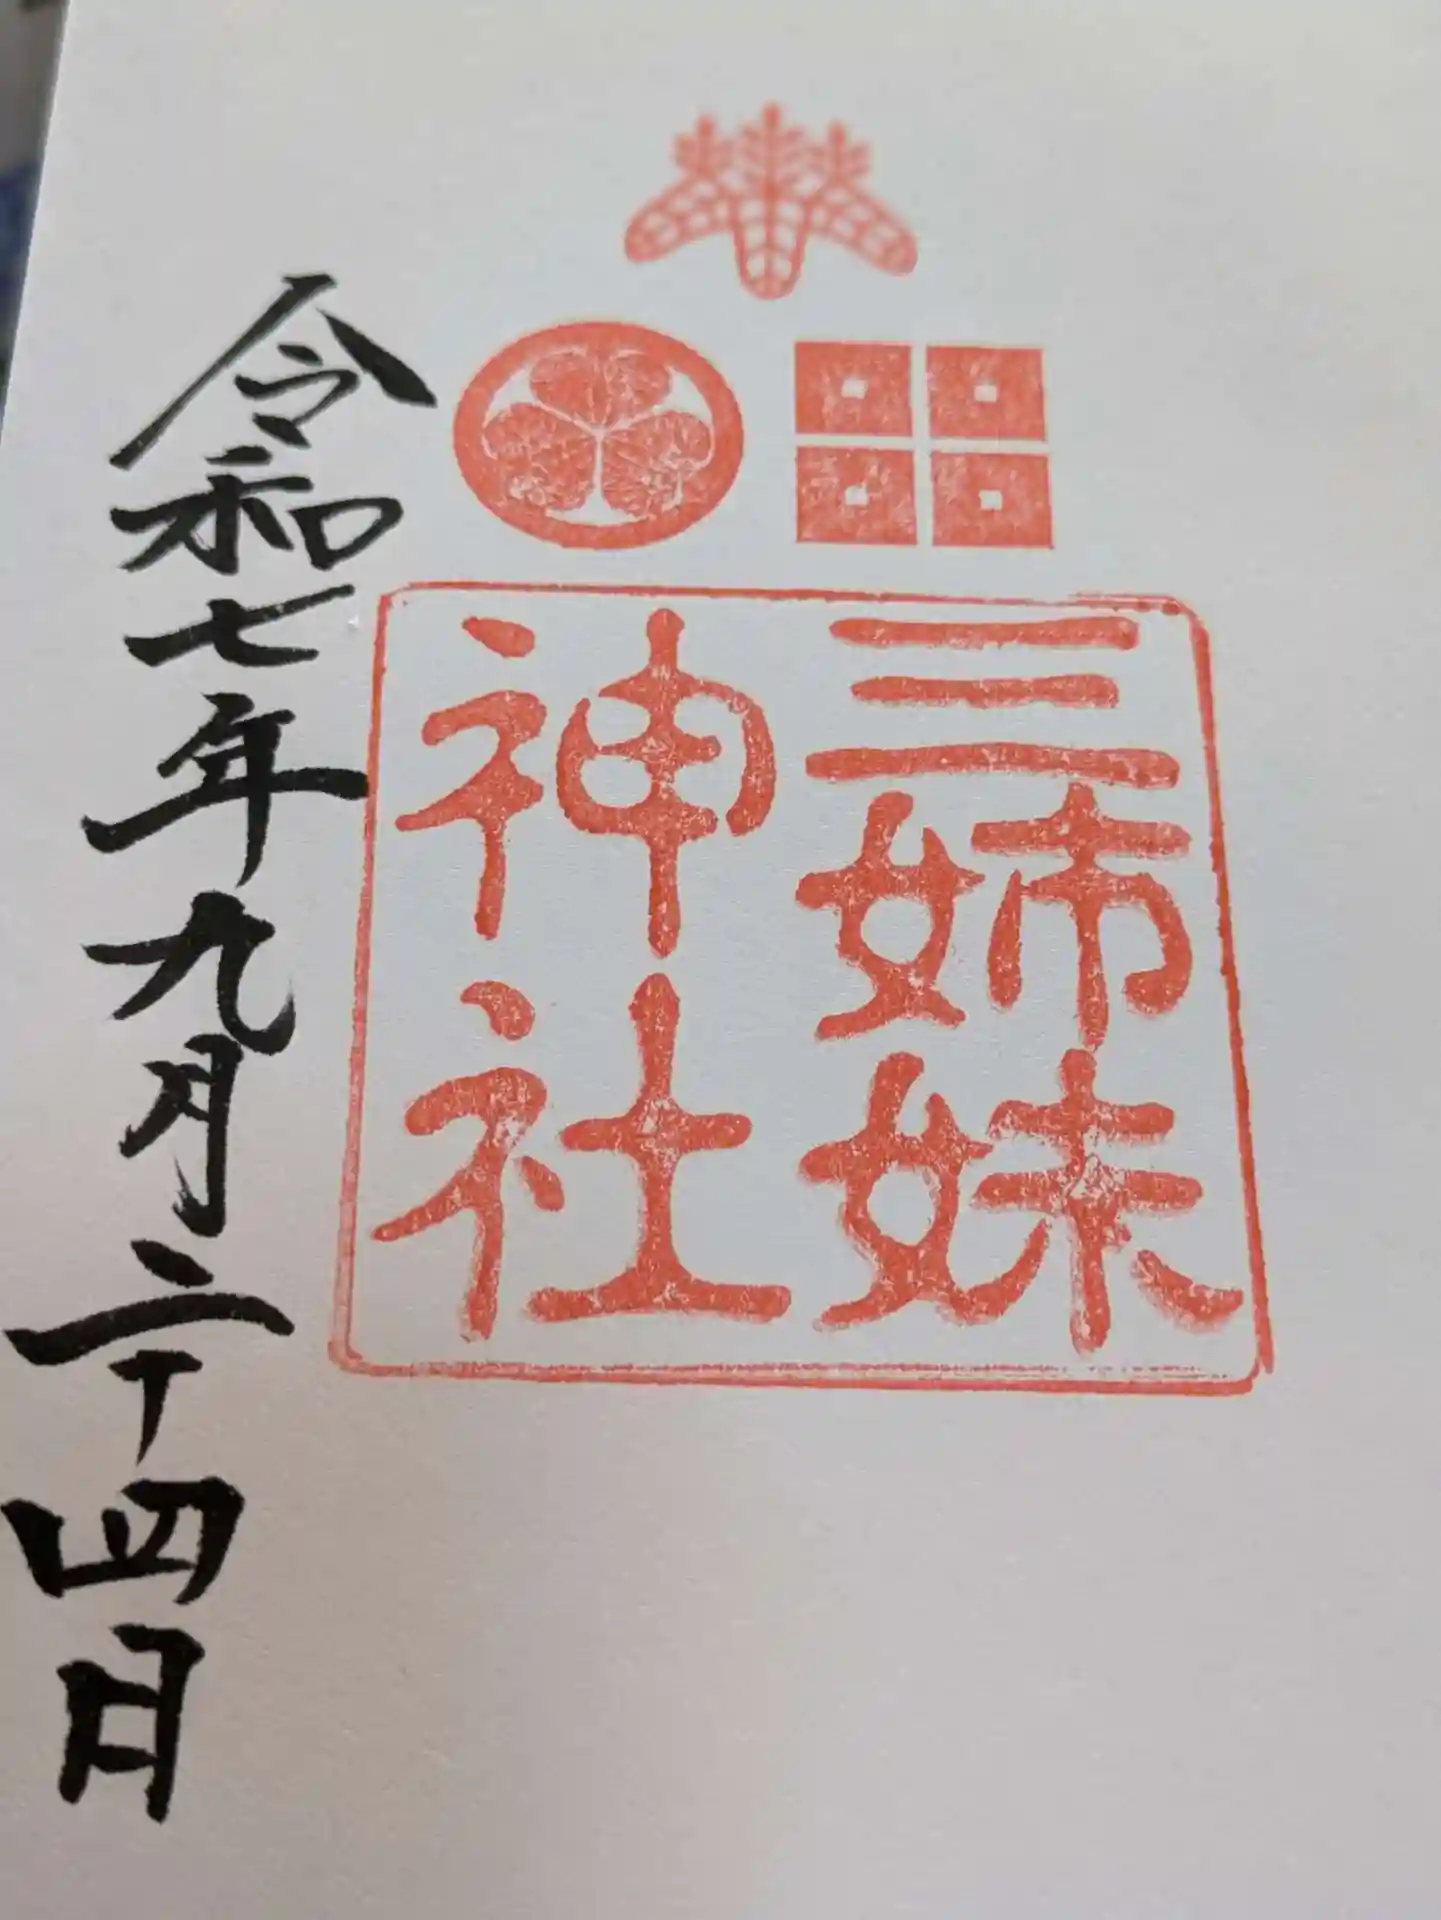 三姉妹
神社
令和七年九月二十四日